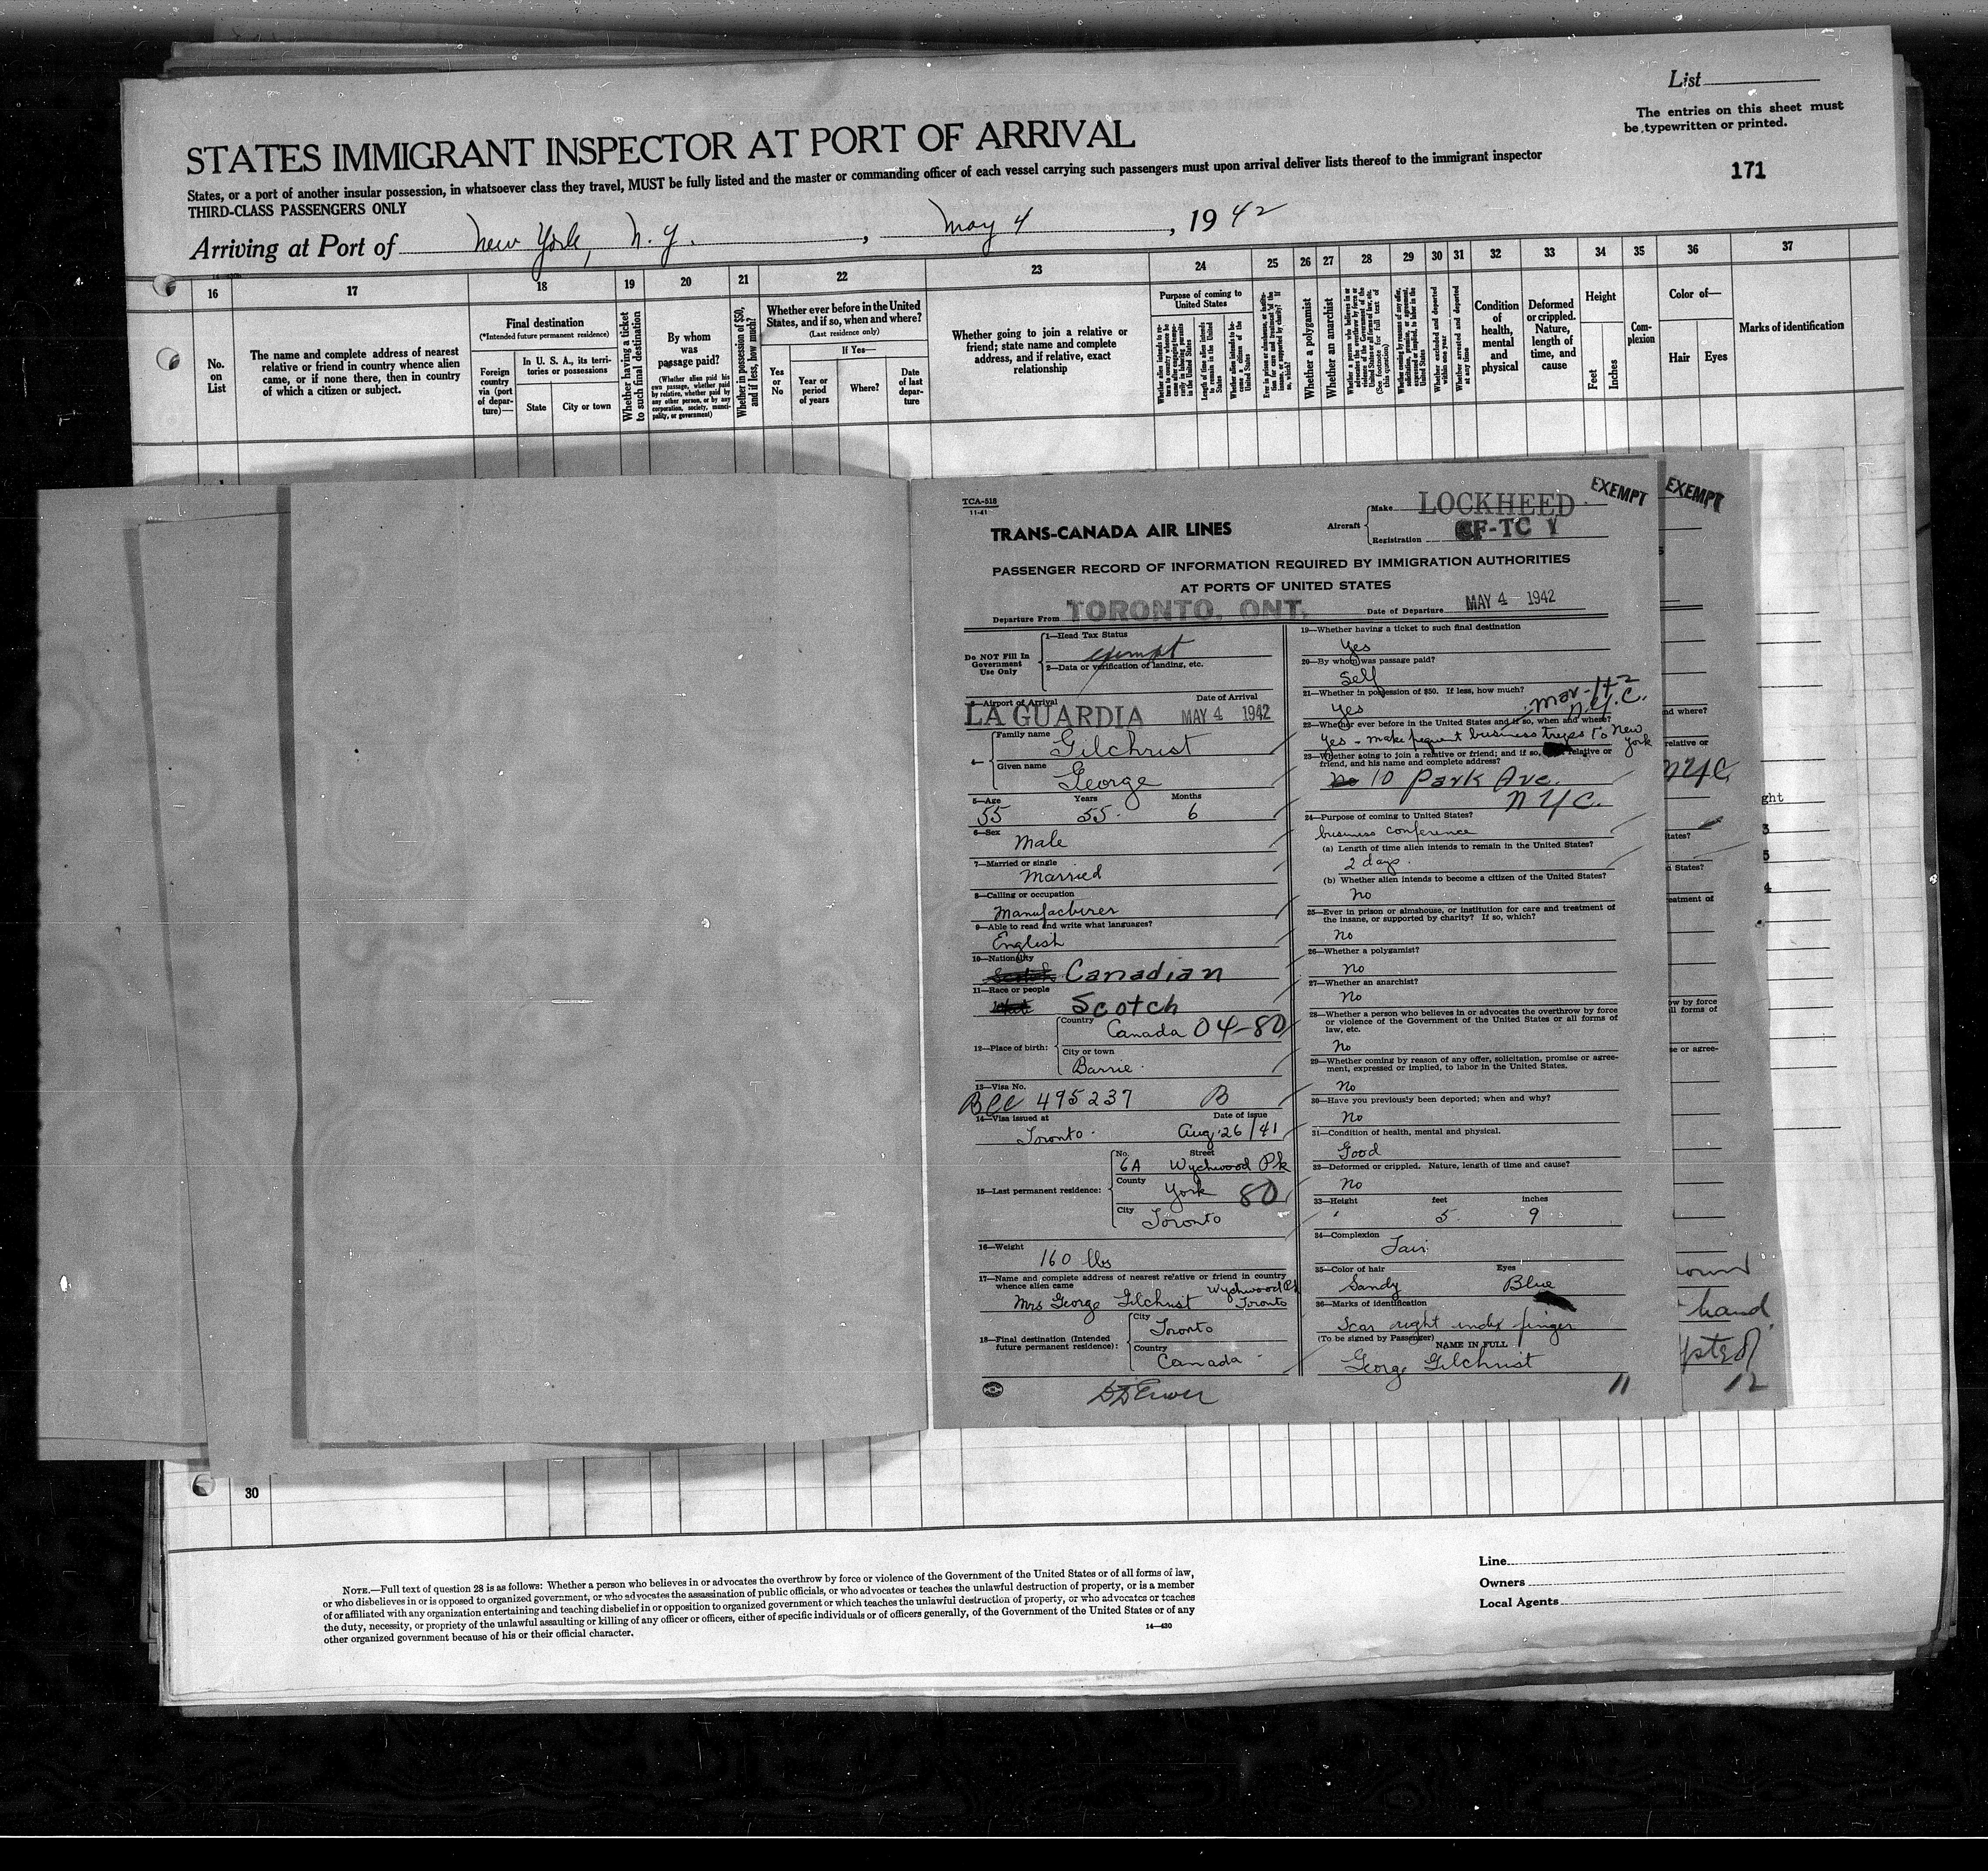 List
The entries on this sheet must
be typewritten or printed.
STATES IMMIGRANT INSPECTOR AT PORT OF ARRIVAL
171
States, or a port of another insular possession, in whatsoever class they travel, MUST be fully listed and the master or commanding officer of each vessel carrying such passengers must upon arrival deliver lists thereof to the immigrant inspector
THIRD-CLASS PASSENGERS ONLY
Arriving at Port of New York, N.Y. , May 4 , 19 42
16 17 18 19 20 21 22 23 24 25 26 27 28 29 30 31 32 33 34 35 36 37
No. on List
The name and complete address of nearest
relative or friend in country whence alien
came, or if none there, then in country
of which a citizen or subject.
Final destination
(*Intended future permanent residence)
Foreign country via (port of departure)—
In U. S. A., its territories or possessions
State
City or town
Whether having a ticket to such final destination
By whom was passage paid?
(Whether alien paid his own passage, whether paid by relative, whether paid by any other person, or by any corporation, society, municipality, or government)
Whether in possession of $50, and if less, how much?
Whether ever before in the United
States, and if so, when and where?
(Last residence only)
If Yes—
Yes or No
Year or period of years
Where?
Date of last departure
Whether going to join a relative or
friend; state name and complete
address, and if relative, exact
relationship
Purpose of coming to United States
Whether a polygamist
Whether an anarchist
Whether excluded and deported within one year
Whether arrested and deported at any time
Condition of health, mental and physical
Deformed or crippled. Nature, length of time, and cause
Height
Feet
Inches
Complexion
Color of—
Hair
Eyes
Marks of identification
TCA-518
11-41
TRANS-CANADA AIR LINES
Aircraft
Make LOCKHEED
Registration CF-TC Y
EXEMPT
EXEMPT
PASSENGER RECORD OF INFORMATION REQUIRED BY IMMIGRATION AUTHORITIES
AT PORTS OF UNITED STATES
Departure From TORONTO, ONT.
Date of Departure MAY 4 1942
Do NOT Fill In
Government
Use Only
1—Head Tax Status
exempt
2—Data or verification of landing, etc.
3—Airport of Arrival
Date of Arrival
LA GUARDIA MAY 4 1942
4—
Family name
Gilchrist
Given name
George
5—Age Years Months
55 55. 6
6—Sex
Male
7—Married or single
Married
8—Calling or occupation
Manufacturer
9—Able to read and write what languages?
English
10—Nationality
Canadian
11—Race or people
Scotch
12—Place of birth:
Country
Canada 04-80
City or town
Barrie
13—Visa No.
BCC 495237 B
14—Visa issued at Date of issue
Toronto Aug 26/41
15—Last permanent residence:
No. Street
6A Wychwood Pk
County
York 80
City
Toronto
16—Weight
160 lbs
17—Name and complete address of nearest relative or friend in country
whence alien came
Wychwood Pk
Mrs George Gilchrist Toronto
18—Final destination (Intended
future permanent residence):
City
Toronto
Country
Canada
19—Whether having a ticket to such final destination
Yes
20—By whom was passage paid?
Self
21—Whether in possession of $50. If less, how much?
Yes
Mar-142
N.Y.C.
22—Whether ever before in the United States and if so, when and where?
Yes - make frequent business trips to New York
23—Whether going to join a relative or friend; and if so, relative or
friend, and his name and complete address?
No 10 Park Ave.
NYC.
24—Purpose of coming to United States?
business conference
(a) Length of time alien intends to remain in the United States?
2 days.
(b) Whether alien intends to become a citizen of the United States?
No
25—Ever in prison or almshouse, or institution for care and treatment of
the insane, or supported by charity? If so, which?
No
26—Whether a polygamist?
No
27—Whether an anarchist?
No
28—Whether a person who believes in or advocates the overthrow by force
or violence of the Government of the United States or all forms of
law, etc.
No
29—Whether coming by reason of any offer, solicitation, promise or agree-
ment, expressed or implied, to labor in the United States.
No
30—Have you previously been deported; when and why?
No
31—Condition of health, mental and physical.
Good
32—Deformed or crippled. Nature, length of time and cause?
No
33—Height feet inches
5 9
34—Complexion
Fair
35—Color of hair Eyes
Sandy Blue
36—Marks of identification
Scar right index finger
(To be signed by Passenger)
NAME IN FULL
George Gilchrist
11
nd where?
relative or
NYC
tates?
n States?
eatment of
ow by force
all forms of
se or agree-
hand
12
ght
3
5
4
30
NOTE.—Full text of question 28 is as follows: Whether a person who believes in or advocates the overthrow by force or violence of the Government of the United States or of all forms of law,
or who disbelieves in or is opposed to organized government, or who advocates the assassination of public officials, or who advocates or teaches the unlawful destruction of property, or is a member
of or affiliated with any organization entertaining and teaching disbelief in or opposition to organized government or which teaches the unlawful destruction of property, or who advocates or teaches
the duty, necessity, or propriety of the unlawful assaulting or killing of any officer or officers, either of specific individuals or of officers generally, of the Government of the United States or of any
other organized government because of his or their official character.
14—430
Line
Owners
Local Agents